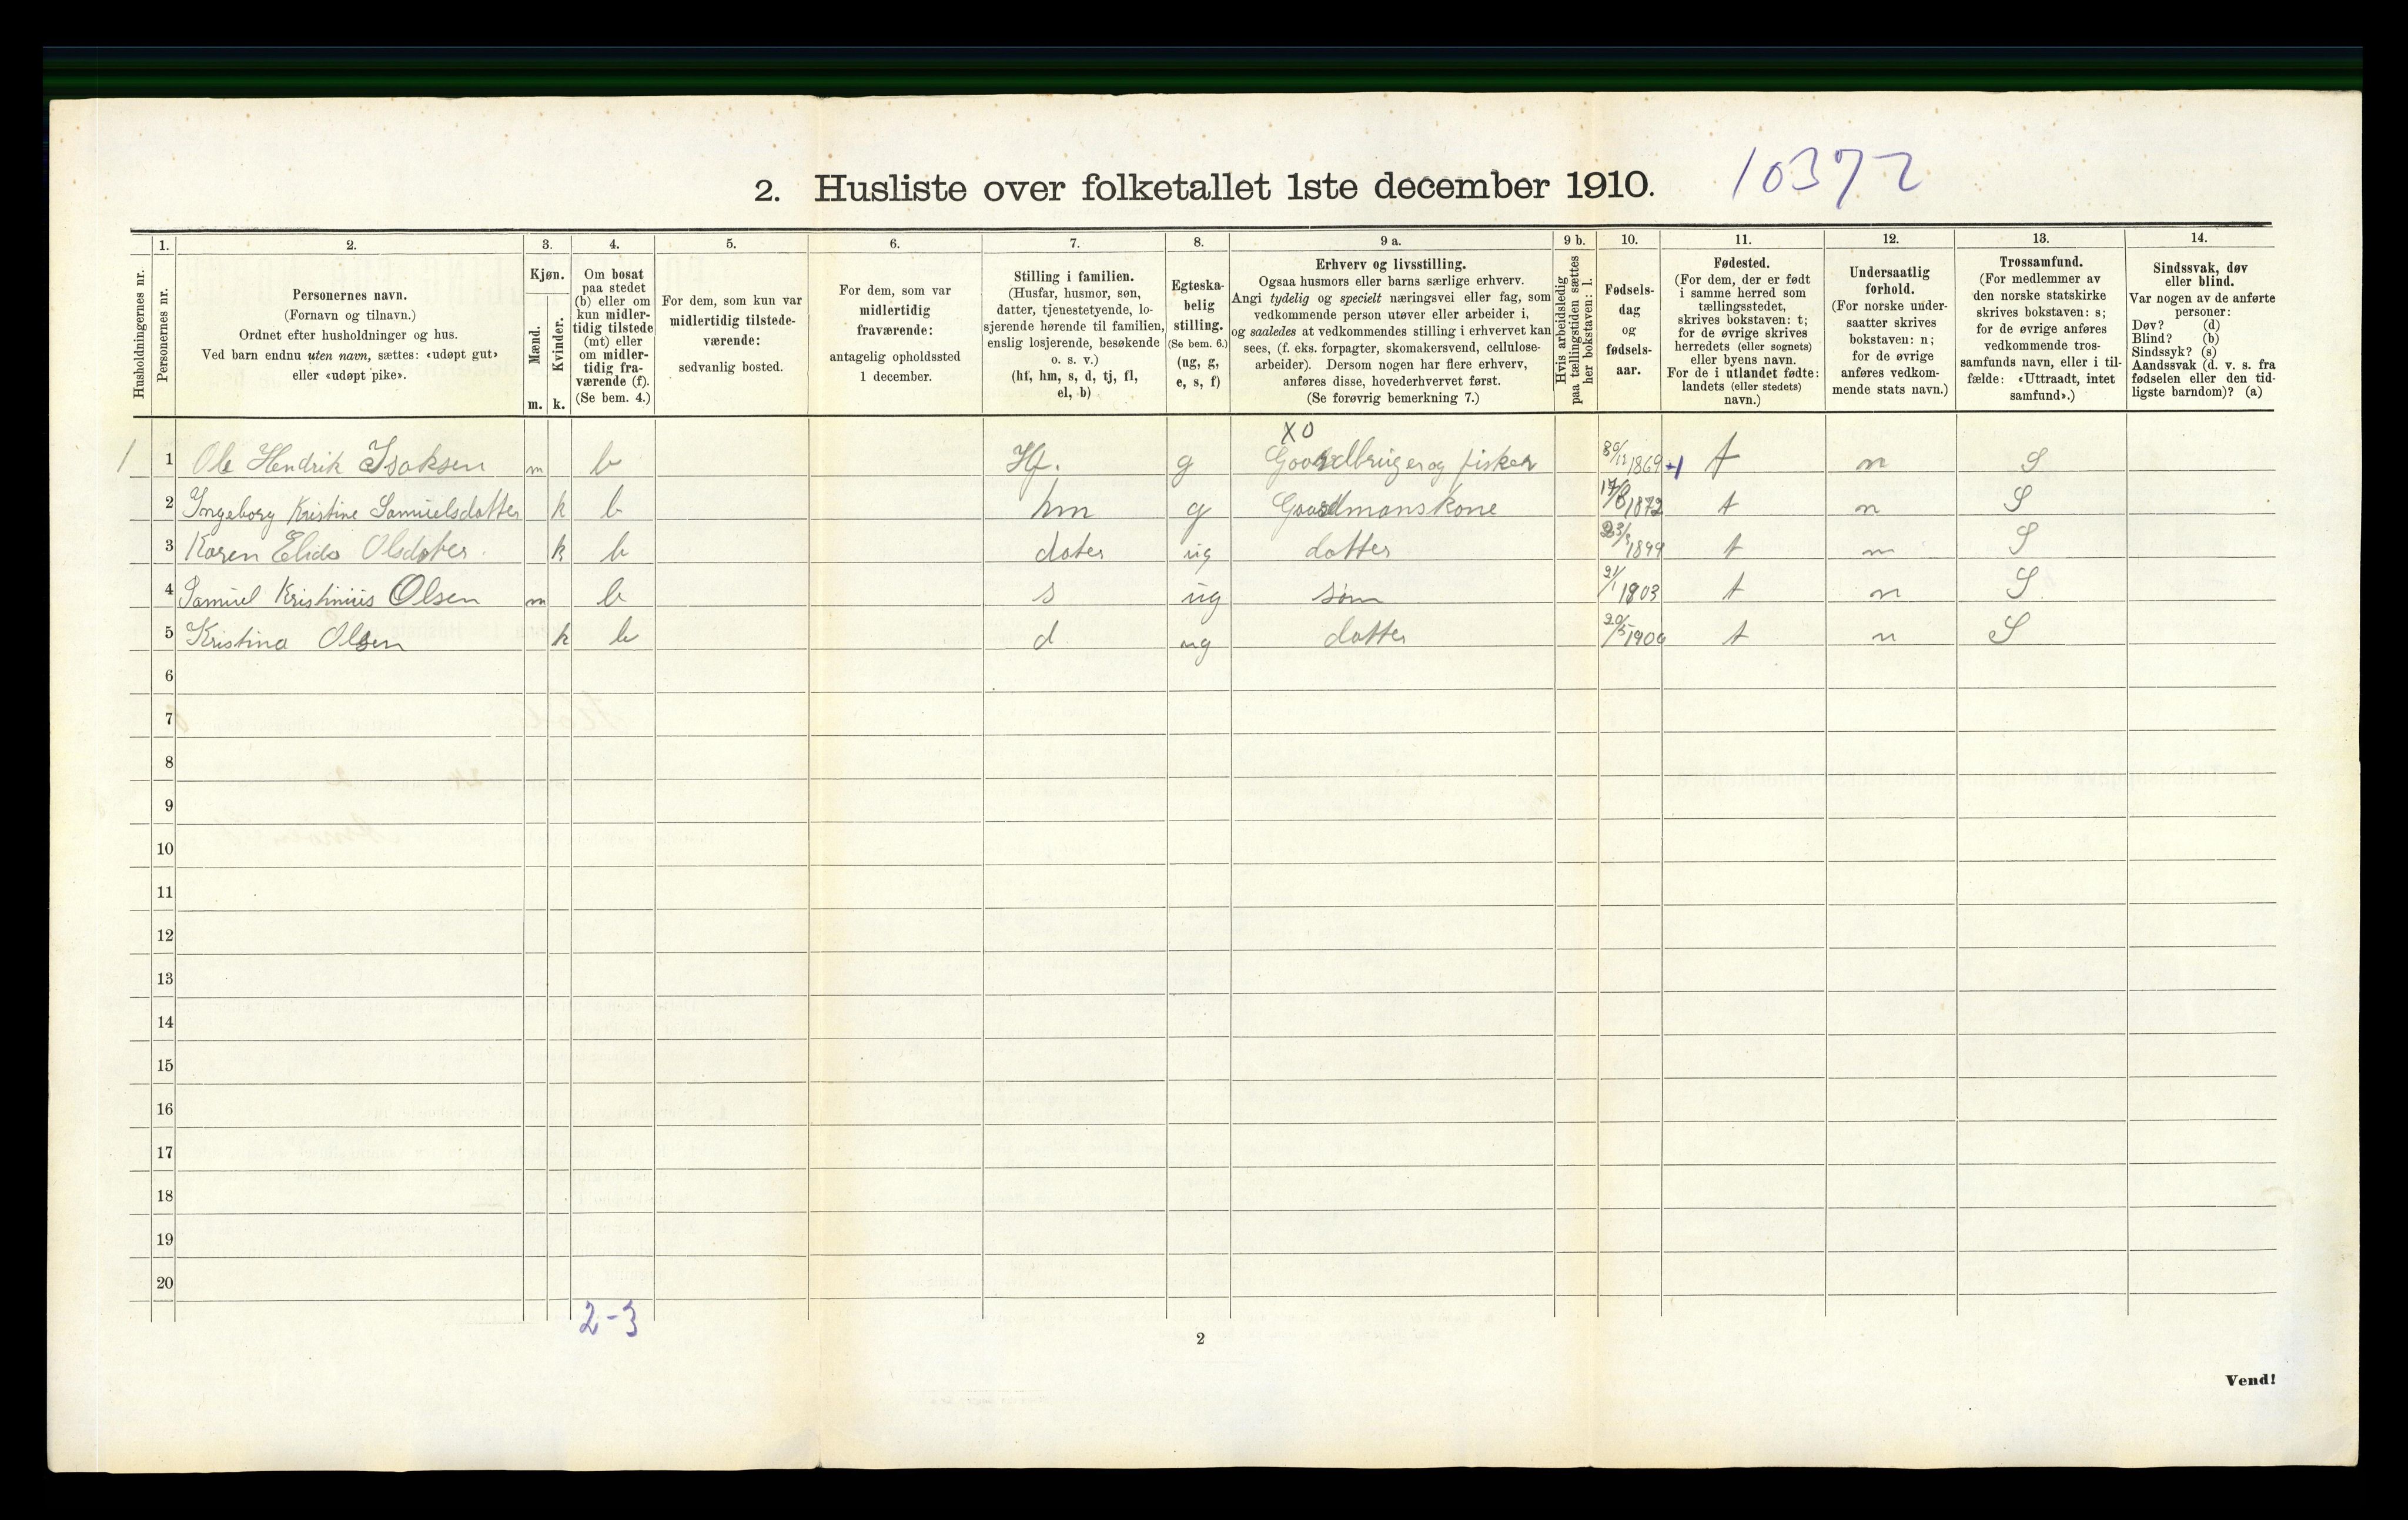 2. Husliste over folketallet 1ste december 1910. 10372
1. 2. 3. 4. 5. 6. 7. 8. 9 a. 9 b. 10. 11. 12. 13. 14.
Husholdningernes nr.
Personernes nr.
Personernes navn.
(Fornavn og tilnavn.)
Ordnet efter husholdninger og hus.
Ved barn endnu uten navn, sættes: «udøpt gut»
eller «udøpt pike».
Kjøn.
Mænd.
Kvinder.
m. k.
Om bosat
paa stedet
(b) eller om
kun midler-
tidig tilstede
(mt) eller
om midler-
tidig fra-
værende (f).
(Se bem. 4.)
For dem, som kun var
midlertidig tilstede-
værende:
sedvanlig bosted.
For dem, som var
midlertidig
fraværende:
antagelig opholdssted
1 december.
Stilling i familien.
(Husfar, husmor, søn,
datter, tjenestetyende, lo-
sjerende hørende til familien,
enslig losjerende, besøkende
o. s. v.)
(hf, hm, s, d, tj, fl,
el, b)
Egteska-
belig
stilling.
(Se bem. 6.)
(ug, g,
e, s, f)
Erhverv og livsstilling.
Ogsaa husmors eller barns særlige erhverv.
Angi tydelig og specielt næringsvei eller fag, som
vedkommende person utøver eller arbeider i,
og saaledes at vedkommendes stilling i erhvervet kan
sees, (f. eks. forpagter, skomakersvend, cellulose-
arbeider). Dersom nogen har flere erhverv,
anføres disse, hovederhvervet først.
(Se forøvrig bemerkning 7.)
Hvis arbeidsledig
paa tællingstiden sættes
her bokstaven: l.
Fødsels-
dag
og
fødsels-
aar.
Fødested.
(For dem, der er født
i samme herred som
tællingsstedet,
skrives bokstaven: t;
for de øvrige skrives
herredets (eller sognets)
eller byens navn.
For de i utlandet fødte:
landets (eller stedets)
navn.)
Undersaatlig
forhold.
(For norske under-
saatter skrives
bokstaven: n;
for de øvrige
anføres vedkom-
mende stats navn.)
Trossamfund.
(For medlemmer av
den norske statskirke
skrives bokstaven: s;
for de øvrige anføres
vedkommende tros-
samfunds navn, eller i til-
fælde: «Uttraadt, intet
samfund».)
Sindssvak, døv
eller blind.
Var nogen av de anførte
personer:
Døv? (d)
Blind? (b)
Sindssyk? (s)
Aandssvak (d. v. s. fra
fødselen eller den tid-
ligste barndom)? (a)
X0
1 1 Ole Hendrik Isaksen m b Hf. g Gaardbruger og fisker 30/12 1869 +1 t n S
2 Ingeborg Kristine Samuelsdatter k b hm g Gaardmanskone 17/8 1872 t n S
3 Karen Elida Olsdater k b dater ug datter 1899 t n S
4 Samuel Kristinius Olsen m b s ug søn 21/1 1903 t n S
5 Kristina Olsen k b d ug datter 20/5 1906 t n S
6
7
8
9
10
11
12
13
14
15
16
17
18
19
20
2-3
2
Vend!